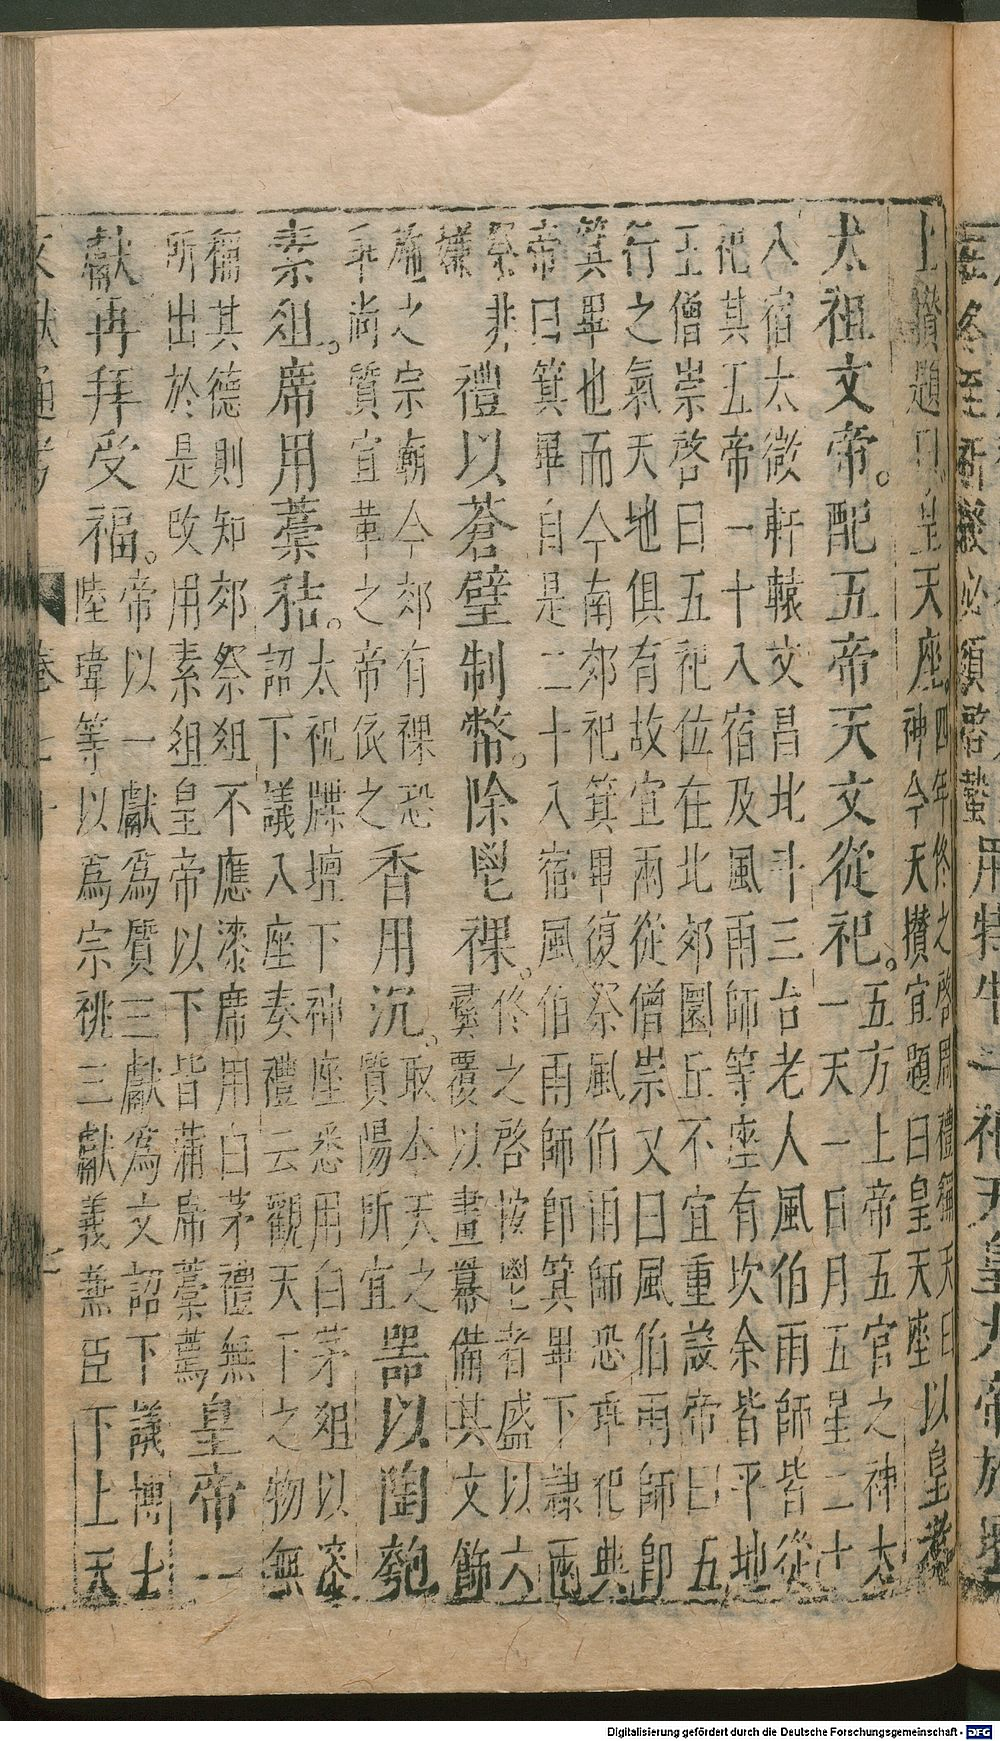 上攢題曰皇天座四年佟之啓周禮稱天曰神今天攢宜題曰皇天座以皇考
太祖文帝。配五帝天文從祀。五方上帝五官之神太一天一日月五星二十
八宿太微軒轅文昌北斗三台老人風伯雨師皆從
祀其五帝二十八宿及風雨師等座有坎余皆平地
五僧崇啓曰五祀位在北郊圜丘不宜重設帝曰五
行之氣天地俱有故宜兩從僧崇又曰風伯雨師卽
箕畢也而今南郊祀箕畢復祭風伯雨師恐乖祀典
帝曰箕畢自是二十八宿風伯雨師卽箕畢下隷兩
祭非
嫌
禮以蒼璧制幣。除鬯祼。佟之啓按鬯者盛以六彝覆以畫冪備其文飾
施之宗廟今郊有祼恐
乖尚質宜革之帝依之
香用沉。取本天之質陽所宜
器以陶匏
素俎。席用藁秸。太祝牒壇下神座悉用白茅俎以漆
詔下議八座奏禮云觀天下之物無
稱其德則知郊祭俎不應漆席用白茅禮無
所出於是改用素俎皇帝以下皆蒲席藁薦
皇帝一
獻再拜受福。帝以一獻爲質三獻爲文詔下議博士
陸瑋等以爲宗祧三獻義兼臣下上天
用特牛一祀天皇大帝於壇
Digitalisierung gefördert durch die Deutsche Forschungsgemeinschaft - DFG